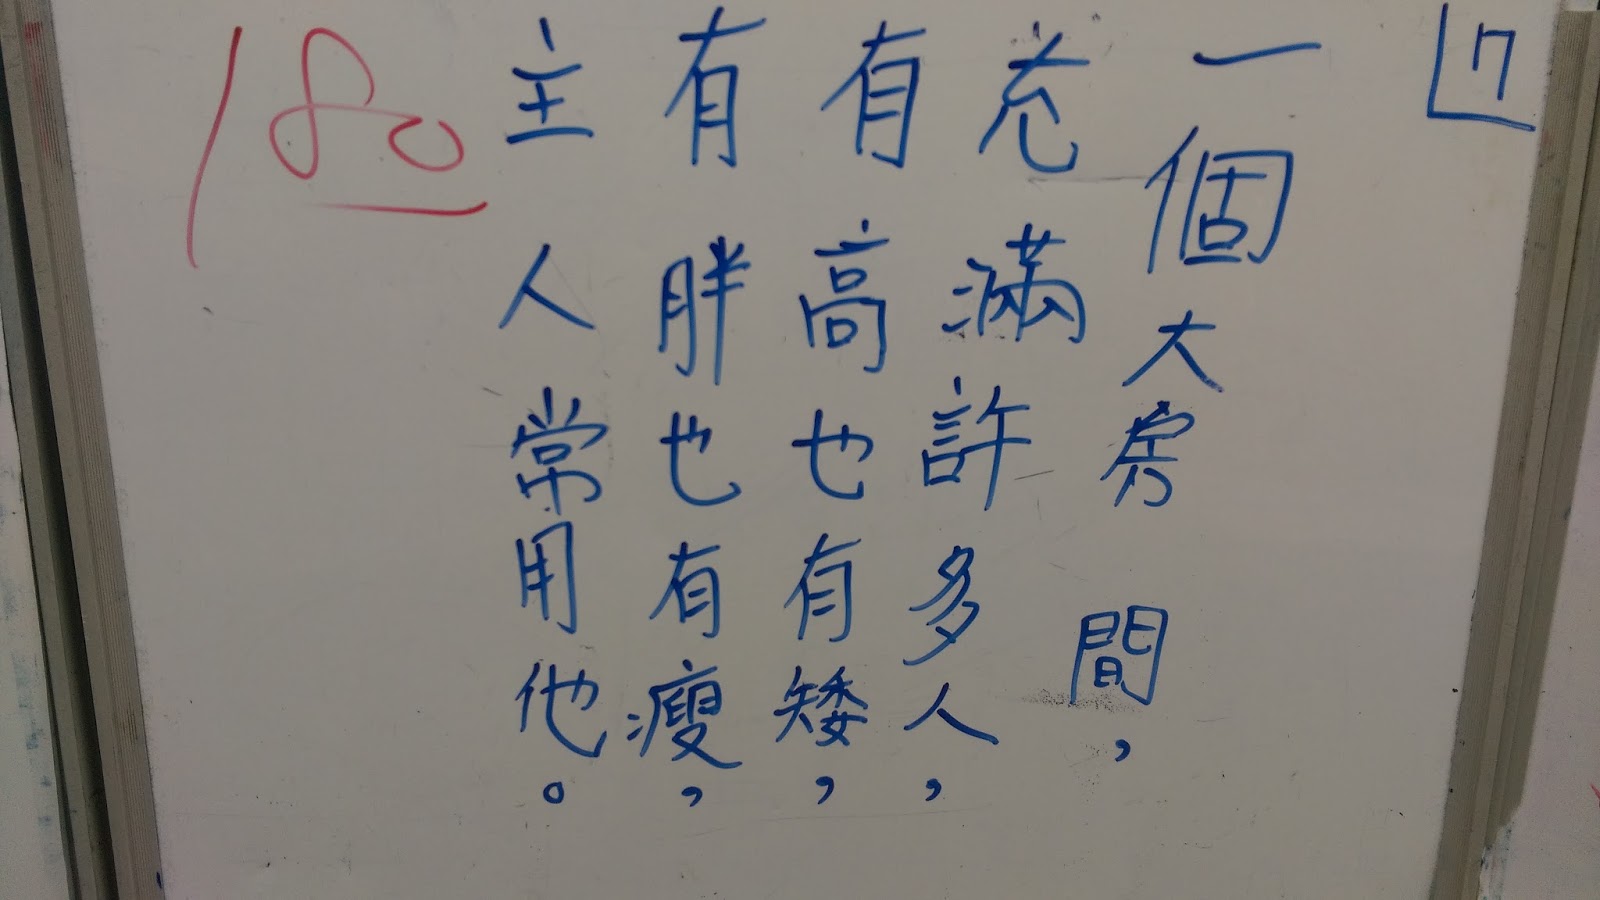 ㄇ
一個大房間，
充滿許多人，
有高也有矮，
有胖也有瘦，
主人常用他。
180